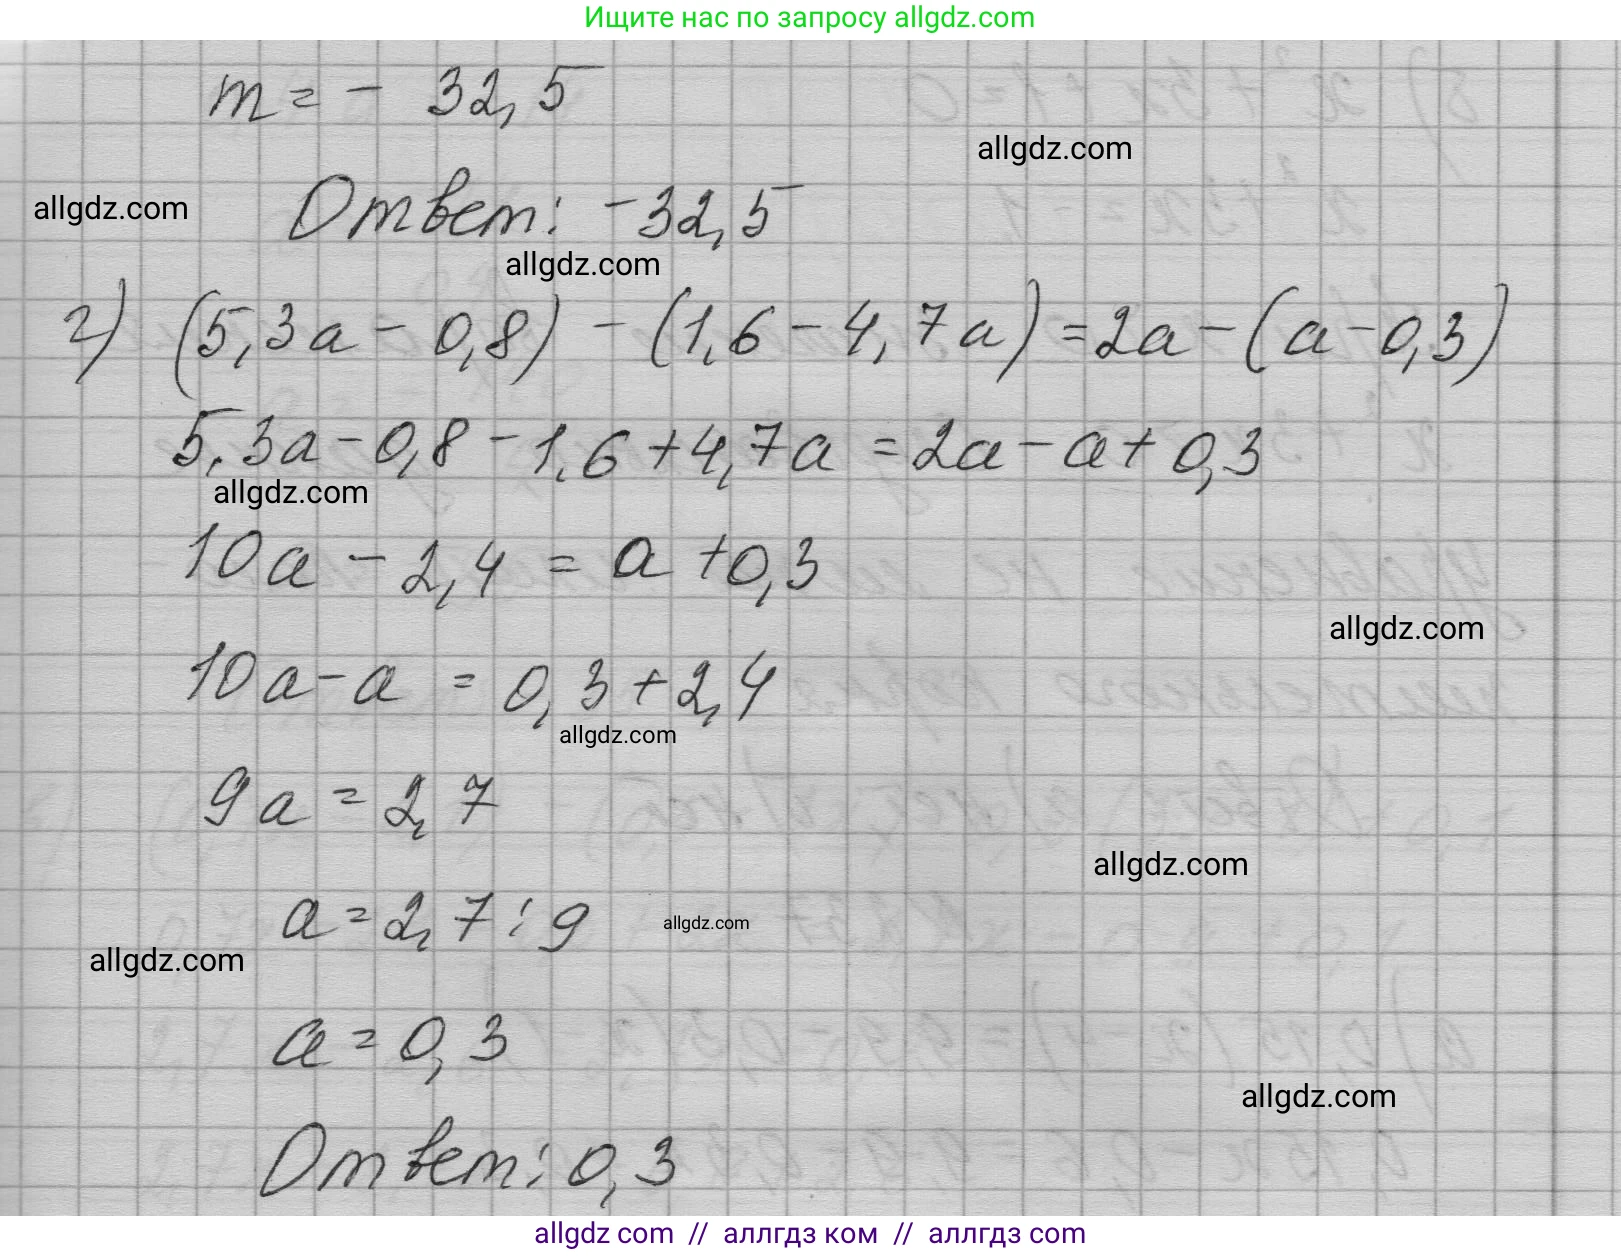 Ищите нас по запросу allgdz.com
m = - 32,5
allgdz.com
allgdz.com
Ответ: -32,5
allgdz.com
г) (5,3a - 0,8) - (1,6 - 4,7a) = 2a - (a - 0,3)
5,3a - 0,8 - 1,6 + 4,7a = 2a - a + 0,3
allgdz.com
10a - 2,4 = a + 0,3
allgdz.com
10a - a = 0,3 + 2,4
allgdz.com
9a = 2,7
allgdz.com
a = 2,7 : 9
allgdz.com
allgdz.com
a = 0,3
allgdz.com
Ответ: 0,3
allgdz com // аллгдз ком // allgdz com